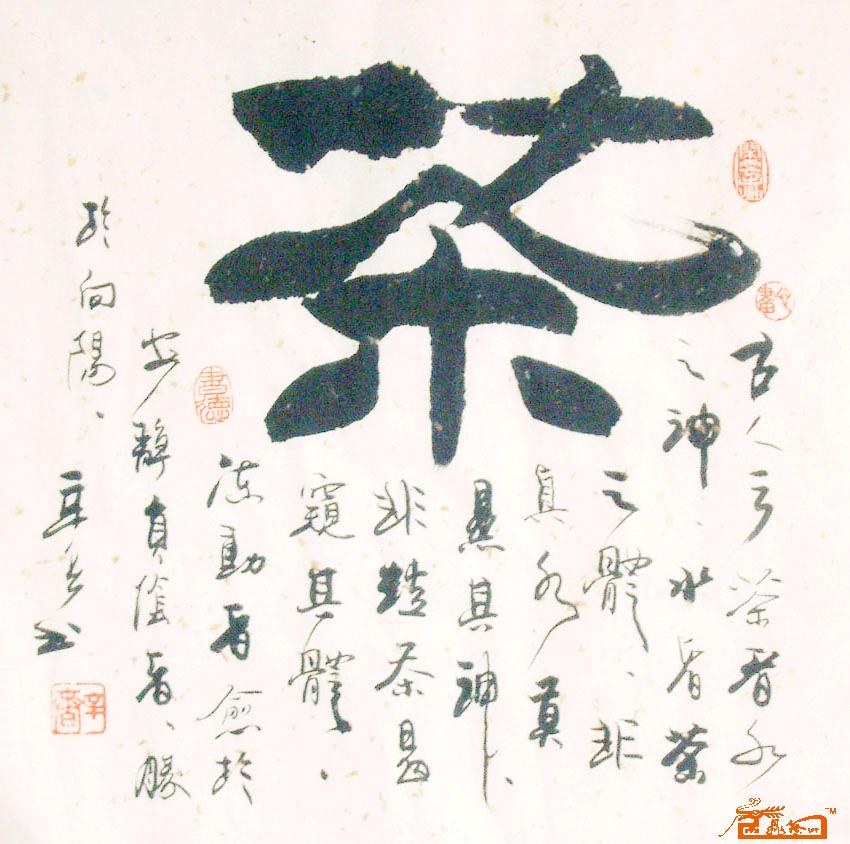 茶
古人云茶者水
之神、水者茶
之體、非
真水莫
㬎其神、
非精茶曷
窺其體、
流動者愈於
安靜負陰者、勝
於向陽、
書德